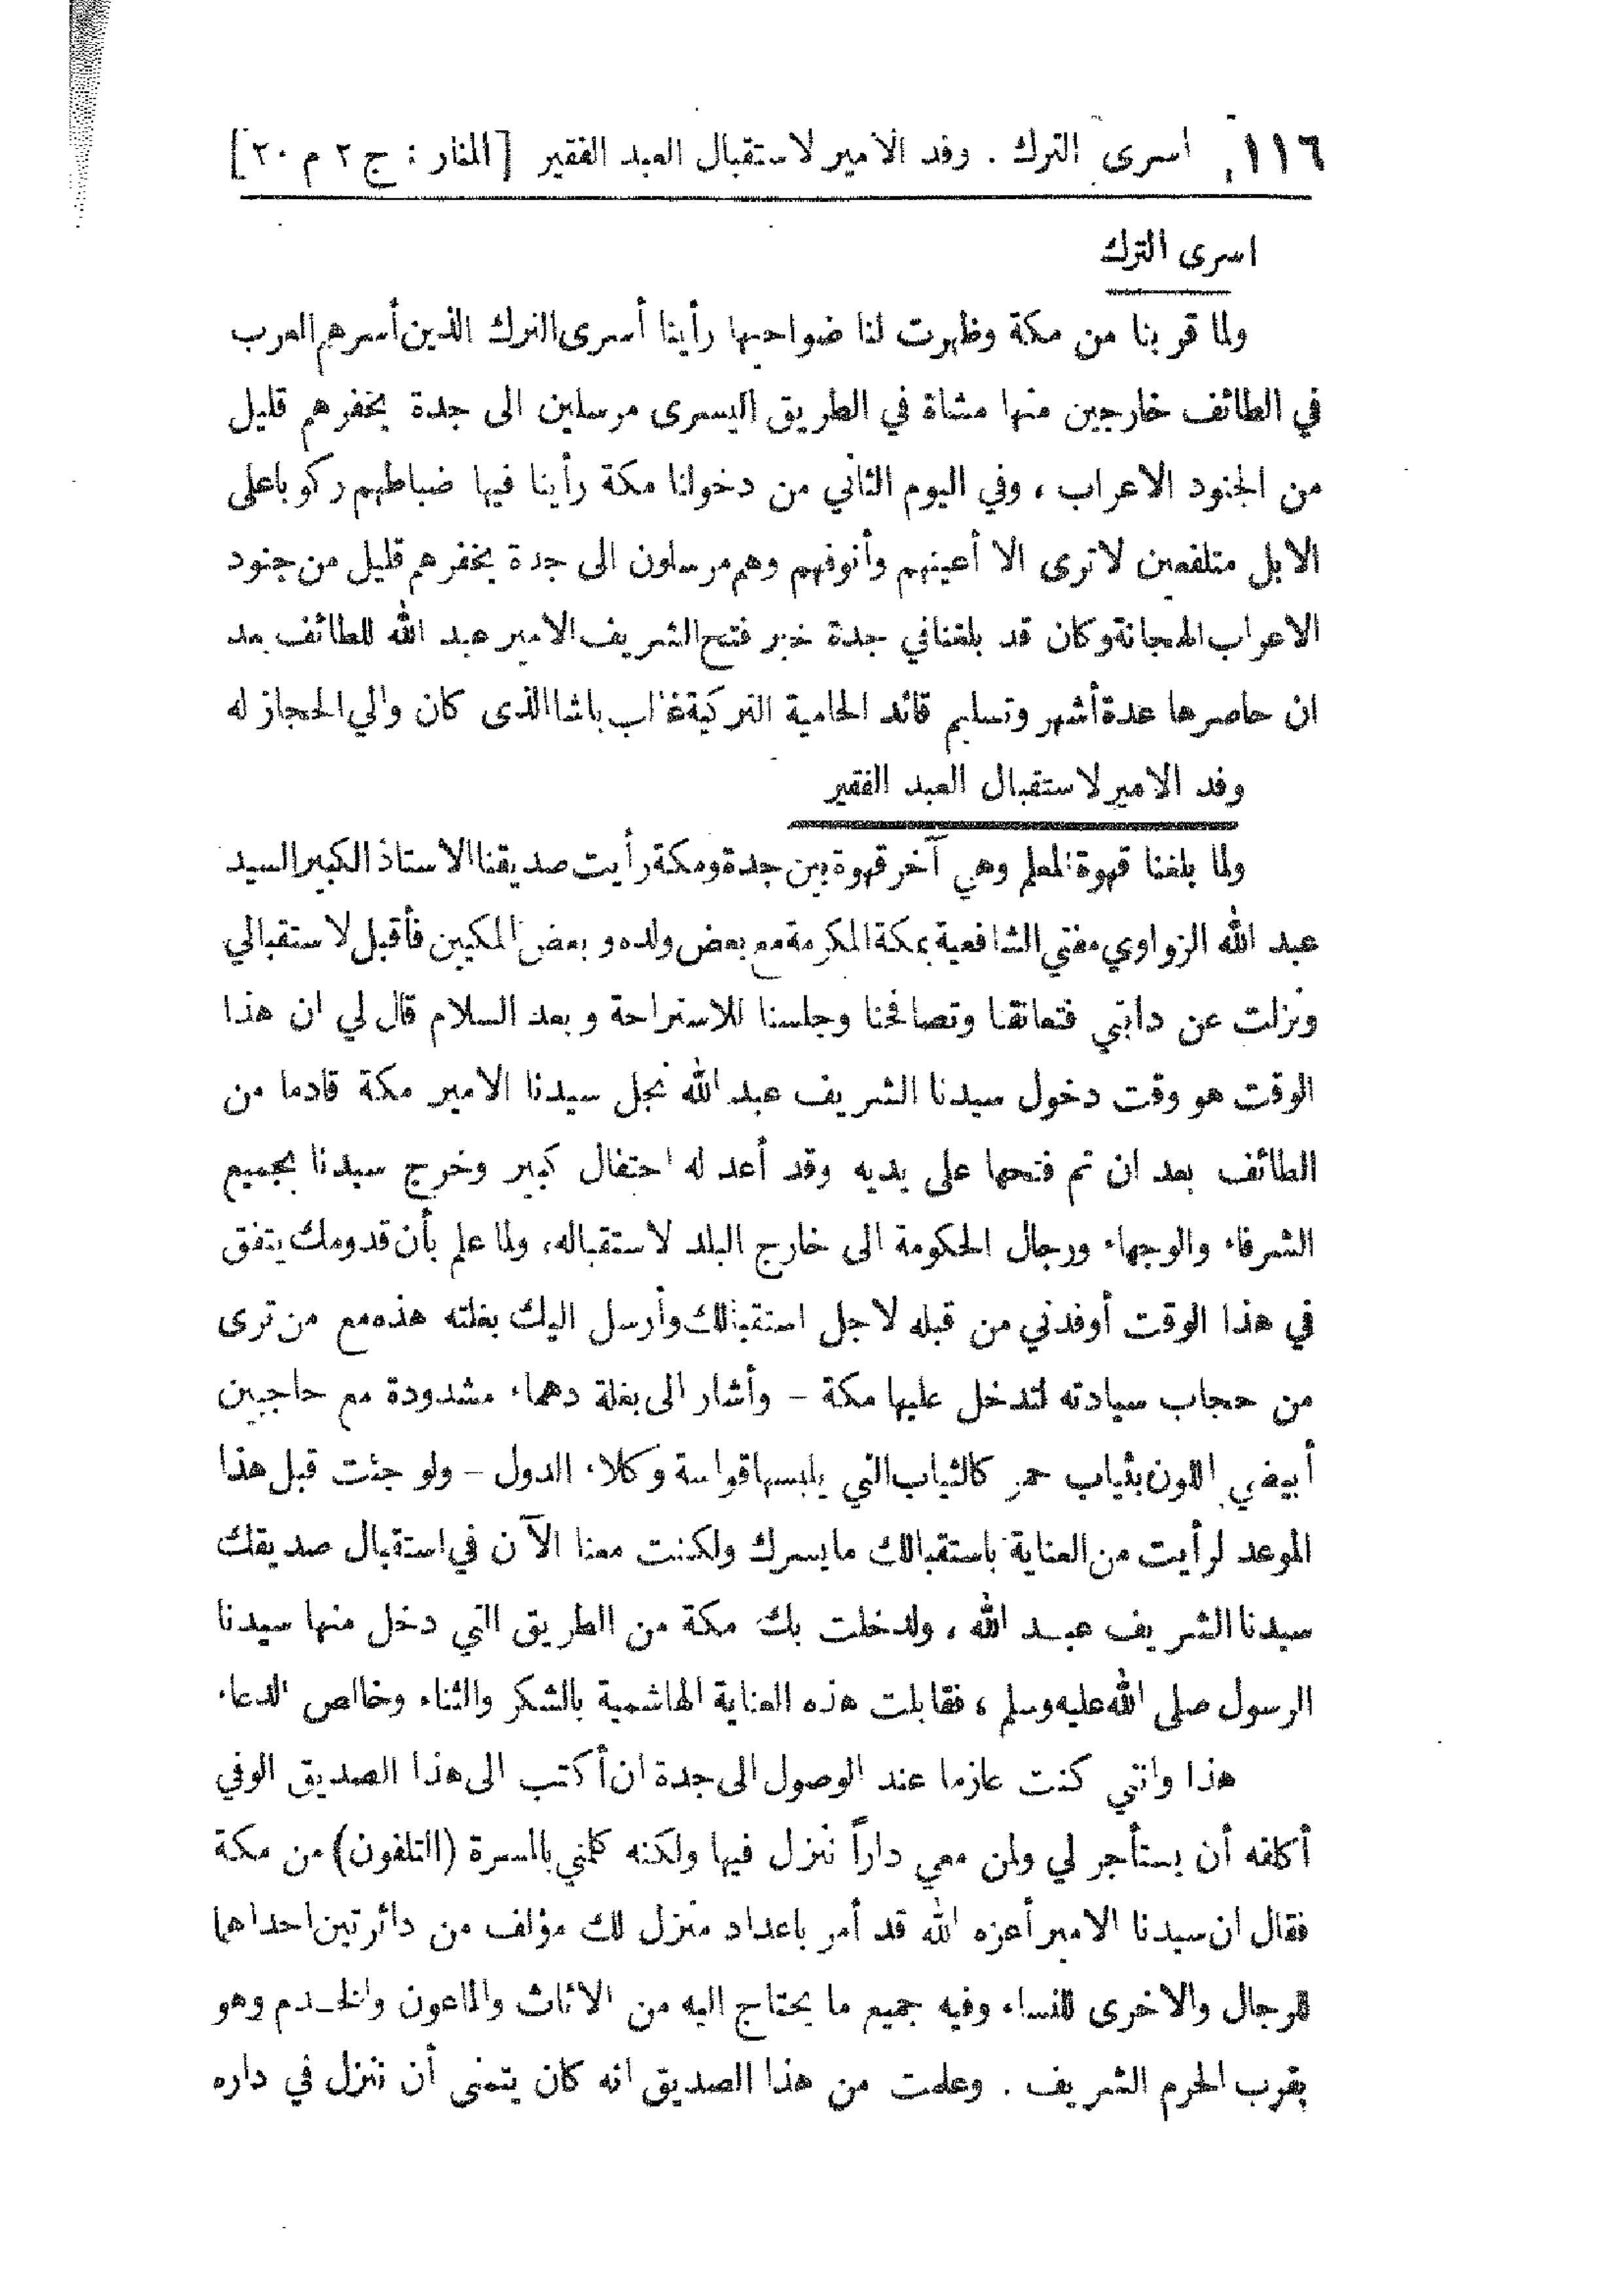 ١١٦ اسرى الترك . وفد الامير لاستقبال العبد الفقير [المنار : ج ٢ م ٢٠]
اسرى الترك
ولما قربنا من مكة وظهرت لنا ضواحيها رأينا أسرى الترك الذين أسرهم العرب
في الطائف خارجين منها مشاة في الطريق اليسرى مرسلين الى جدة يخفرهم قليل
من الجنود الاعراب ، وفي اليوم الثاني من دخولنا مكة رأينا فيها ضباطهم ركوبا على
الابل متلفعين لا ترى الا أعينهم وأنوفهم وهم مرسلون الى جدة يخفرهم قليل من جنود
الاعراب الهجانة وكان قد بلغنا في جدة خبر فتح الشريف الامير عبد الله للطائف بعد
ان حاصرها عدة أشهر وتسليم قائد الحامية التركية غالب باشا الذى كان والي الحجاز له
وفد الامير لاستقبال العبد الفقير
ولما بلغنا قهوة المعلم وهي آخر قهوة بين جدة ومكة رأيت صديقنا الاستاذ الكبير السيد
عبد الله الزواوي مفتي الشافعية بمكة المكرمة مع بعض ولده وبعض المكيين فأقبل لاستقبالي
ونزلت عن دابتي فتعانقنا وتصافحنا وجلسنا للاستراحة وبعد السلام قال لي ان هذا
الوقت هو وقت دخول سيدنا الشريف عبد الله نجل سيدنا الامير مكة قادما من
الطائف بعد ان تم فتحها على يديه وقد أعد له احتفال كبير وخرج سيدنا بجميع
الشرفاء والوجهاء ورجال الحكومة الى خارج البلد لاستقباله، ولما علم بأن قدومك يتفق
في هذا الوقت أوفدني من قبله لاجل استقبالك وأرسل اليك بغلته هذه مع من ترى
من حجاب سيادته لتدخل عليها مكة – وأشار الى بغلة دهماء مشدودة مع حاجبين
أبيضي اللون بثياب حمر كالثياب التي يلبسها قواسة وكلاء الدول – ولو جئت قبل هذا
الموعد لرأيت من العناية باستقبالك ما يسرك ولكنت معنا الآن في استقبال صديقك
سيدنا الشريف عبد الله ، ولدخلت بك مكة من الطريق التي دخل منها سيدنا
الرسول صلى الله عليه وسلم ، فقابلت هذه العناية الهاشمية بالشكر والثناء وخالص الدعاء
هذا وانني كنت عازما عند الوصول الى جدة ان أكتب الى هذا الصديق الوفي
أكلفه أن يستأجر لي ولمن معي داراً ننزل فيها ولكنه كلمني بالمسرة (التلفون) من مكة
فقال ان سيدنا الامير أعزه الله قد أمر باعداد منزل لك مؤلف من دائرتين احداهما
للرجال والاخرى للنساء وفيه جميع ما يحتاج اليه من الاثاث والماعون والخدم وهو
بقرب الحرم الشريف . وعلمت من هذا الصديق انه كان يتمنى أن ننزل في داره